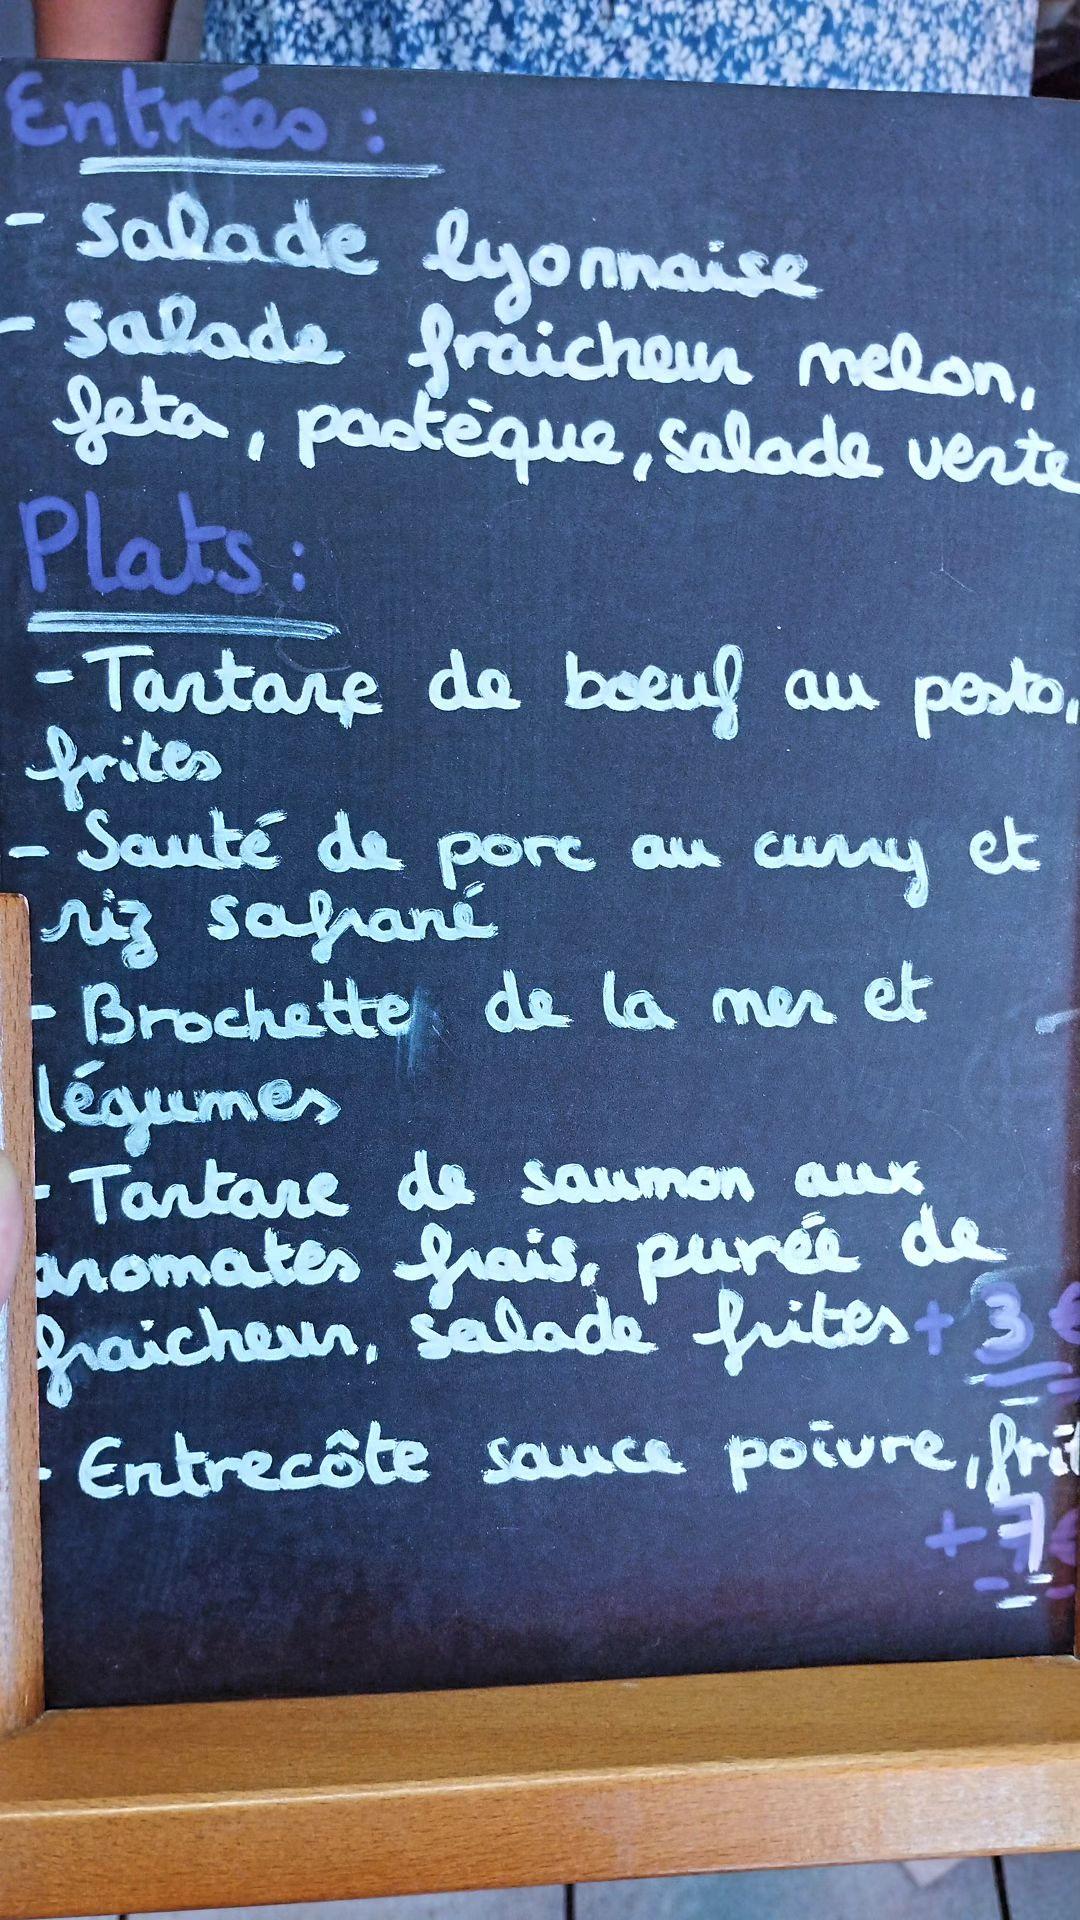 Entrées :
- Salade lyonnaise
- Salade fraicheur melon,
feta, pastèque, salade verte
Plats :
- Tartare de bœuf au pesto,
frites
- Sauté de porc au curry et
riz safrané
- Brochette de la mer et
légumes
- Tartare de saumon aux
aromates frais, purée de
fraicheur, salade frites + 3 €
- Entrecôte sauce poivre, frit
+ 7 €